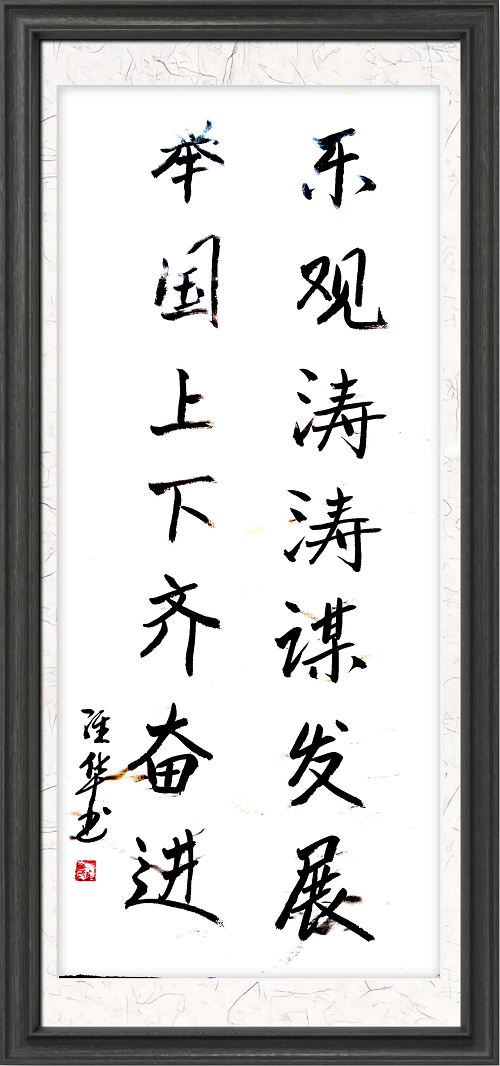 乐观涛涛谋发展
举国上下齐奋进
华书